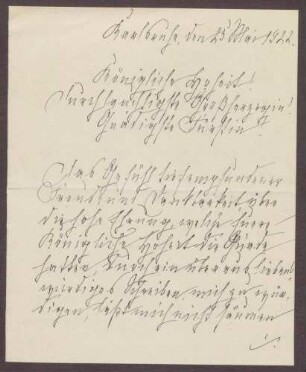 Karlsruhe, den 23 Mai 1922.
Königliche Hoheit!
Durchlauchtigste Großherzogin!
Gnädigste Fürstin!
Das Gefühl tiefempfundener
Freude und Dankbarkeit über
die hohe Ehrung, welche Euere
Königliche Hoheit die Gnade
hatten, durch ein überaus liebens-
würdiges Schreiben, mich zu wür-
digen, läßt mich nicht säumen